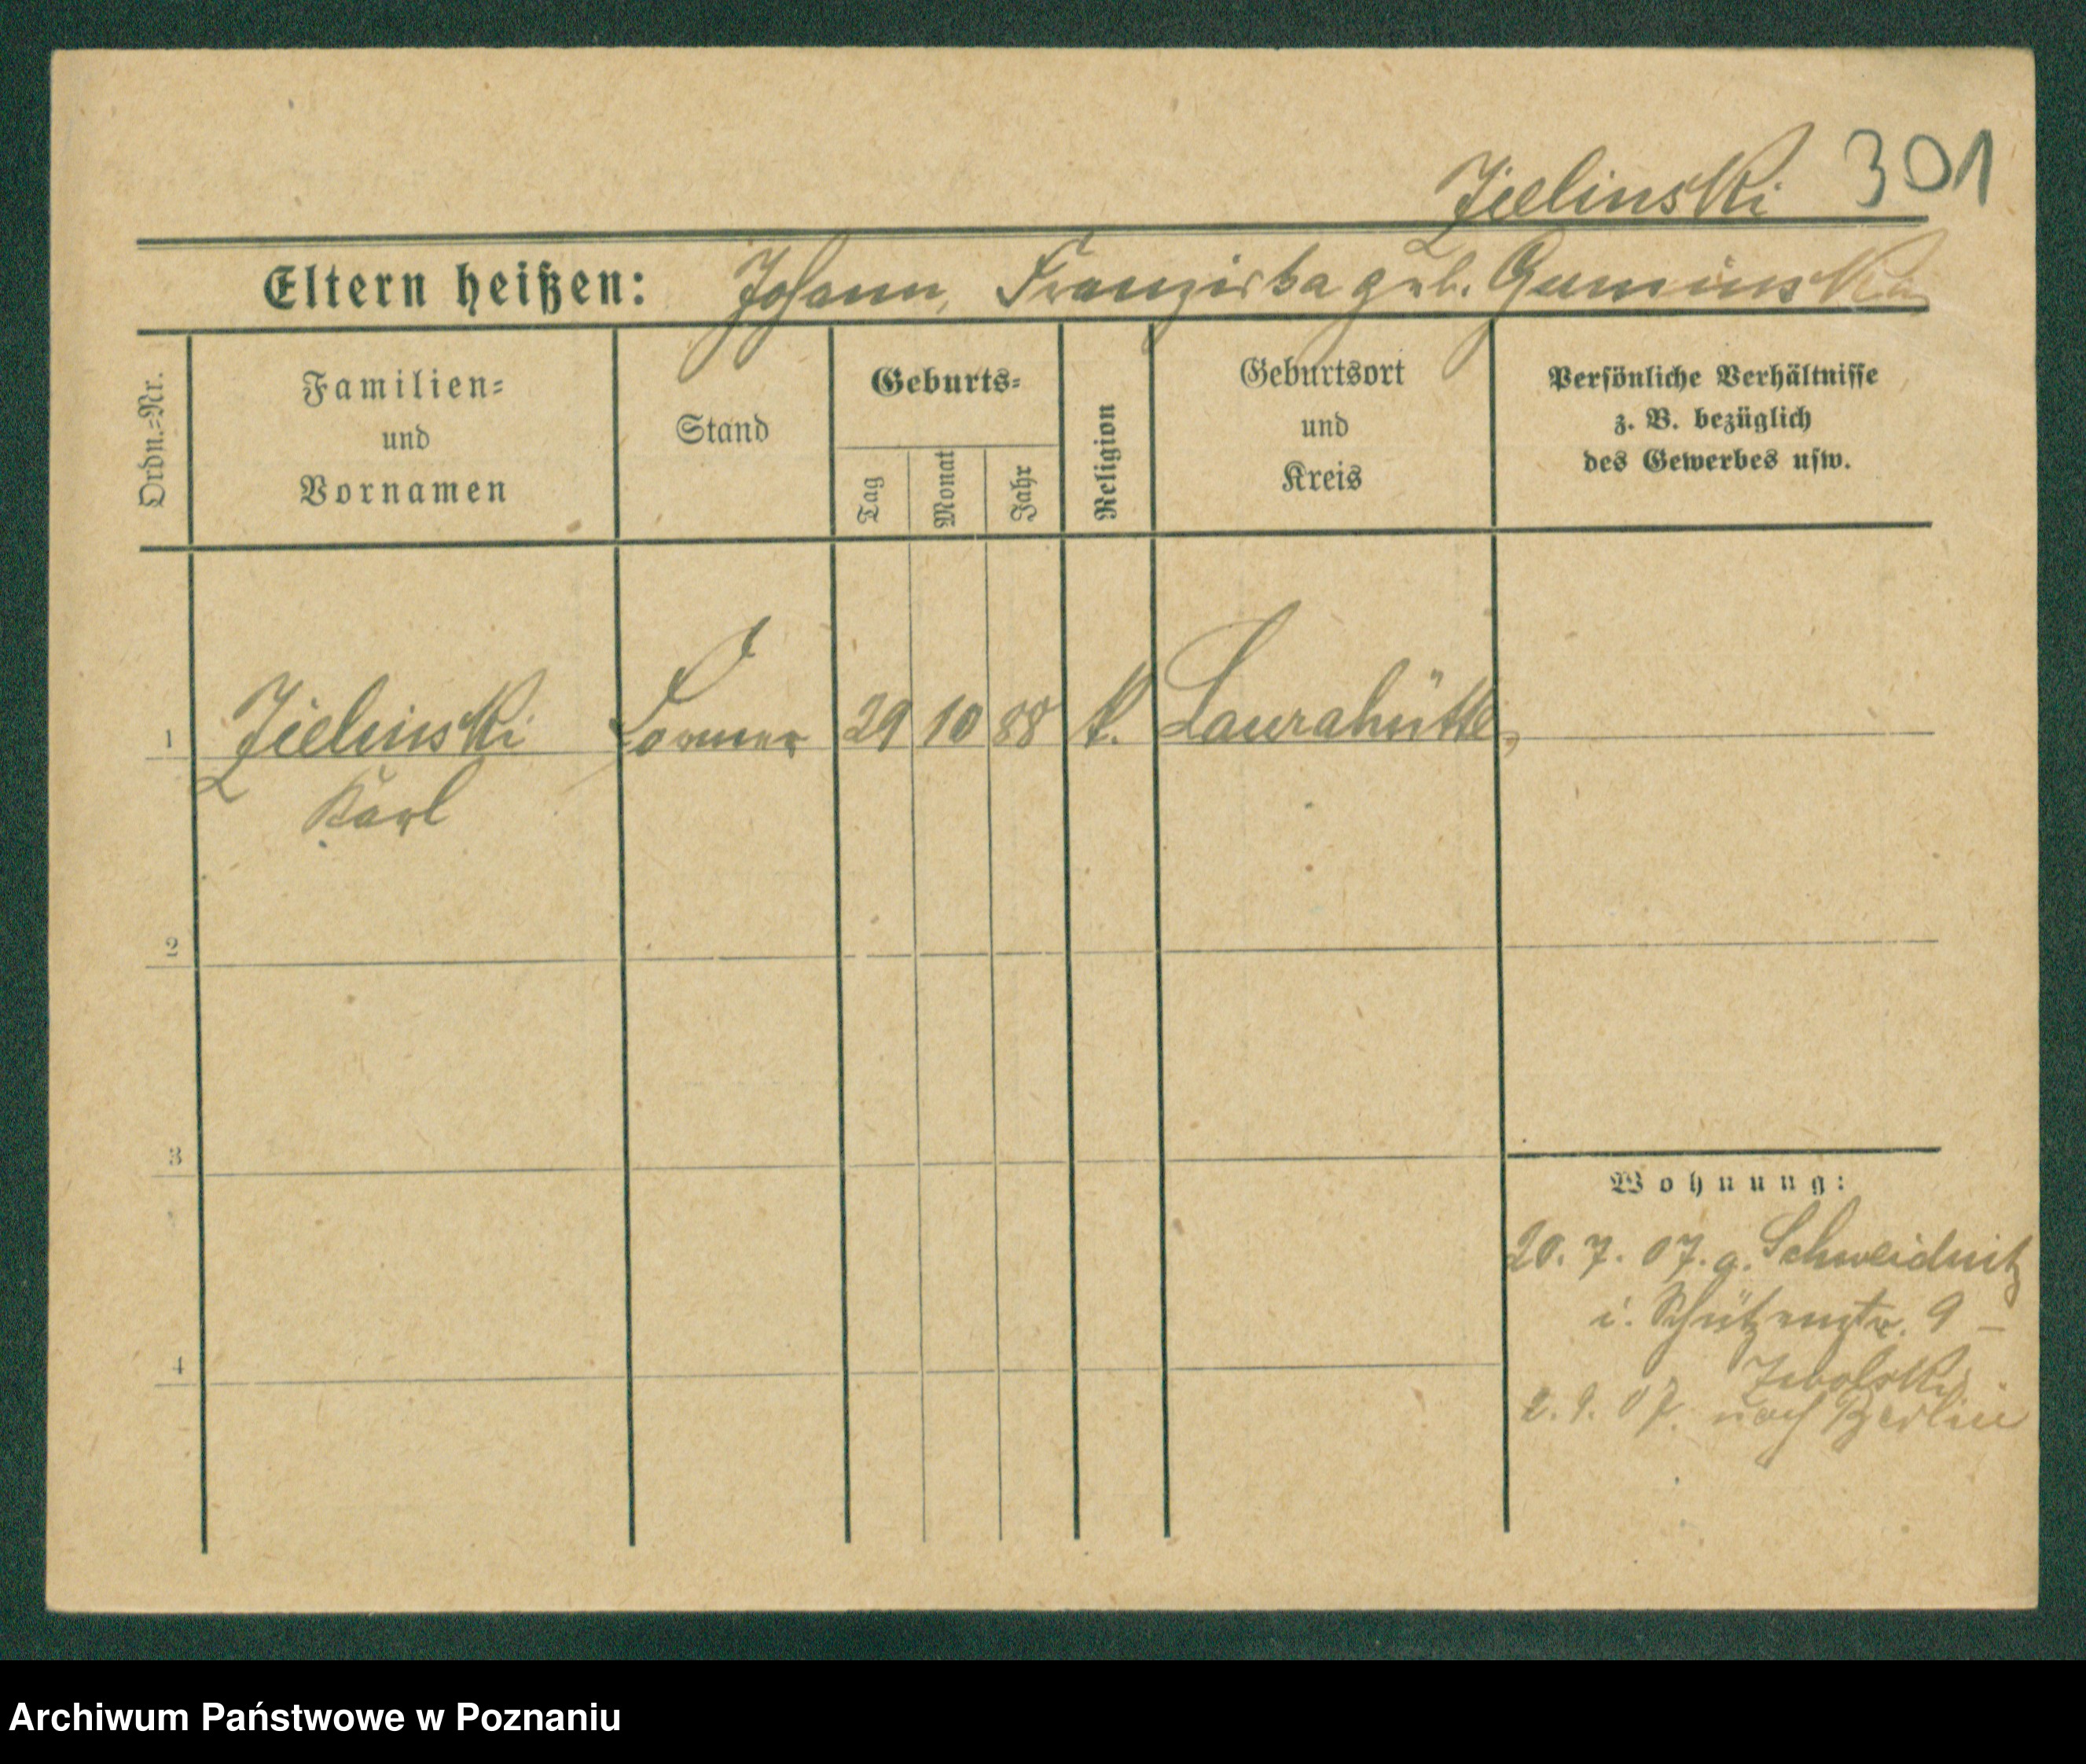 Zielinski 301
Eltern heißen: Johann, Franziska geb. Guminska
Ordn.=Nr.
Familien=
und
Vornamen
Stand
Geburts=
Tag
Monat
Jahr
Religion
Geburtsort
und
Kreis
Persönliche Verhältnisse
z. B. bezüglich
des Gewerbes usw.
1 Zielinski Former 29 10 88 k. Laurahütte,
Karl
2
3
Wohnung:
20. 7. 07. a. Schweidnitz
i. Schützenstr. 9 –
4
2. 9. 07. nach Berlin
Archiwum Państwowe w Poznaniu